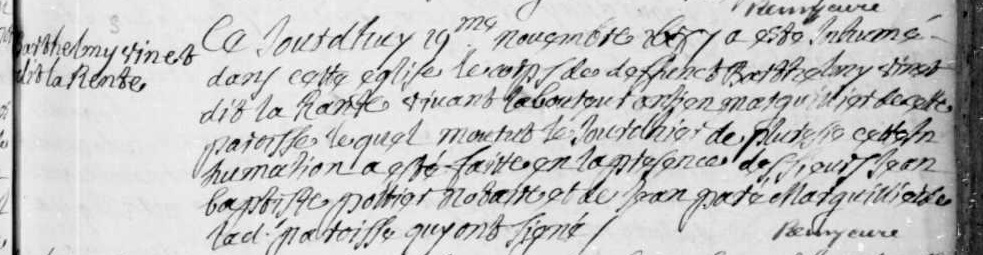 Remy cure
Barthelmy vinet
dit la Rente
Ce Jourdhuy 19me novembre a esté Inhumé
dans cette eglise le corps de deffunct Barthelmy vinet
dit la Rante vivant laboureur antien marguillier de cette
paroisse lequel mourut le Jourdhier de pluresie cette In
humation a esté faitte en la presence des sieurs Jean
baptiste pottier Notaire et de Jean paré Marguillier de
lad. paroisse quy ont signé /
Remy cure